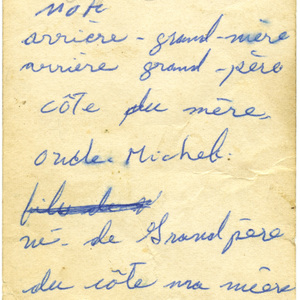 note
arrière - grand - mère
arrière grand - père
côte du mère,
oncle Michel:
fils de
né - de Grandpère
du côte ma mère